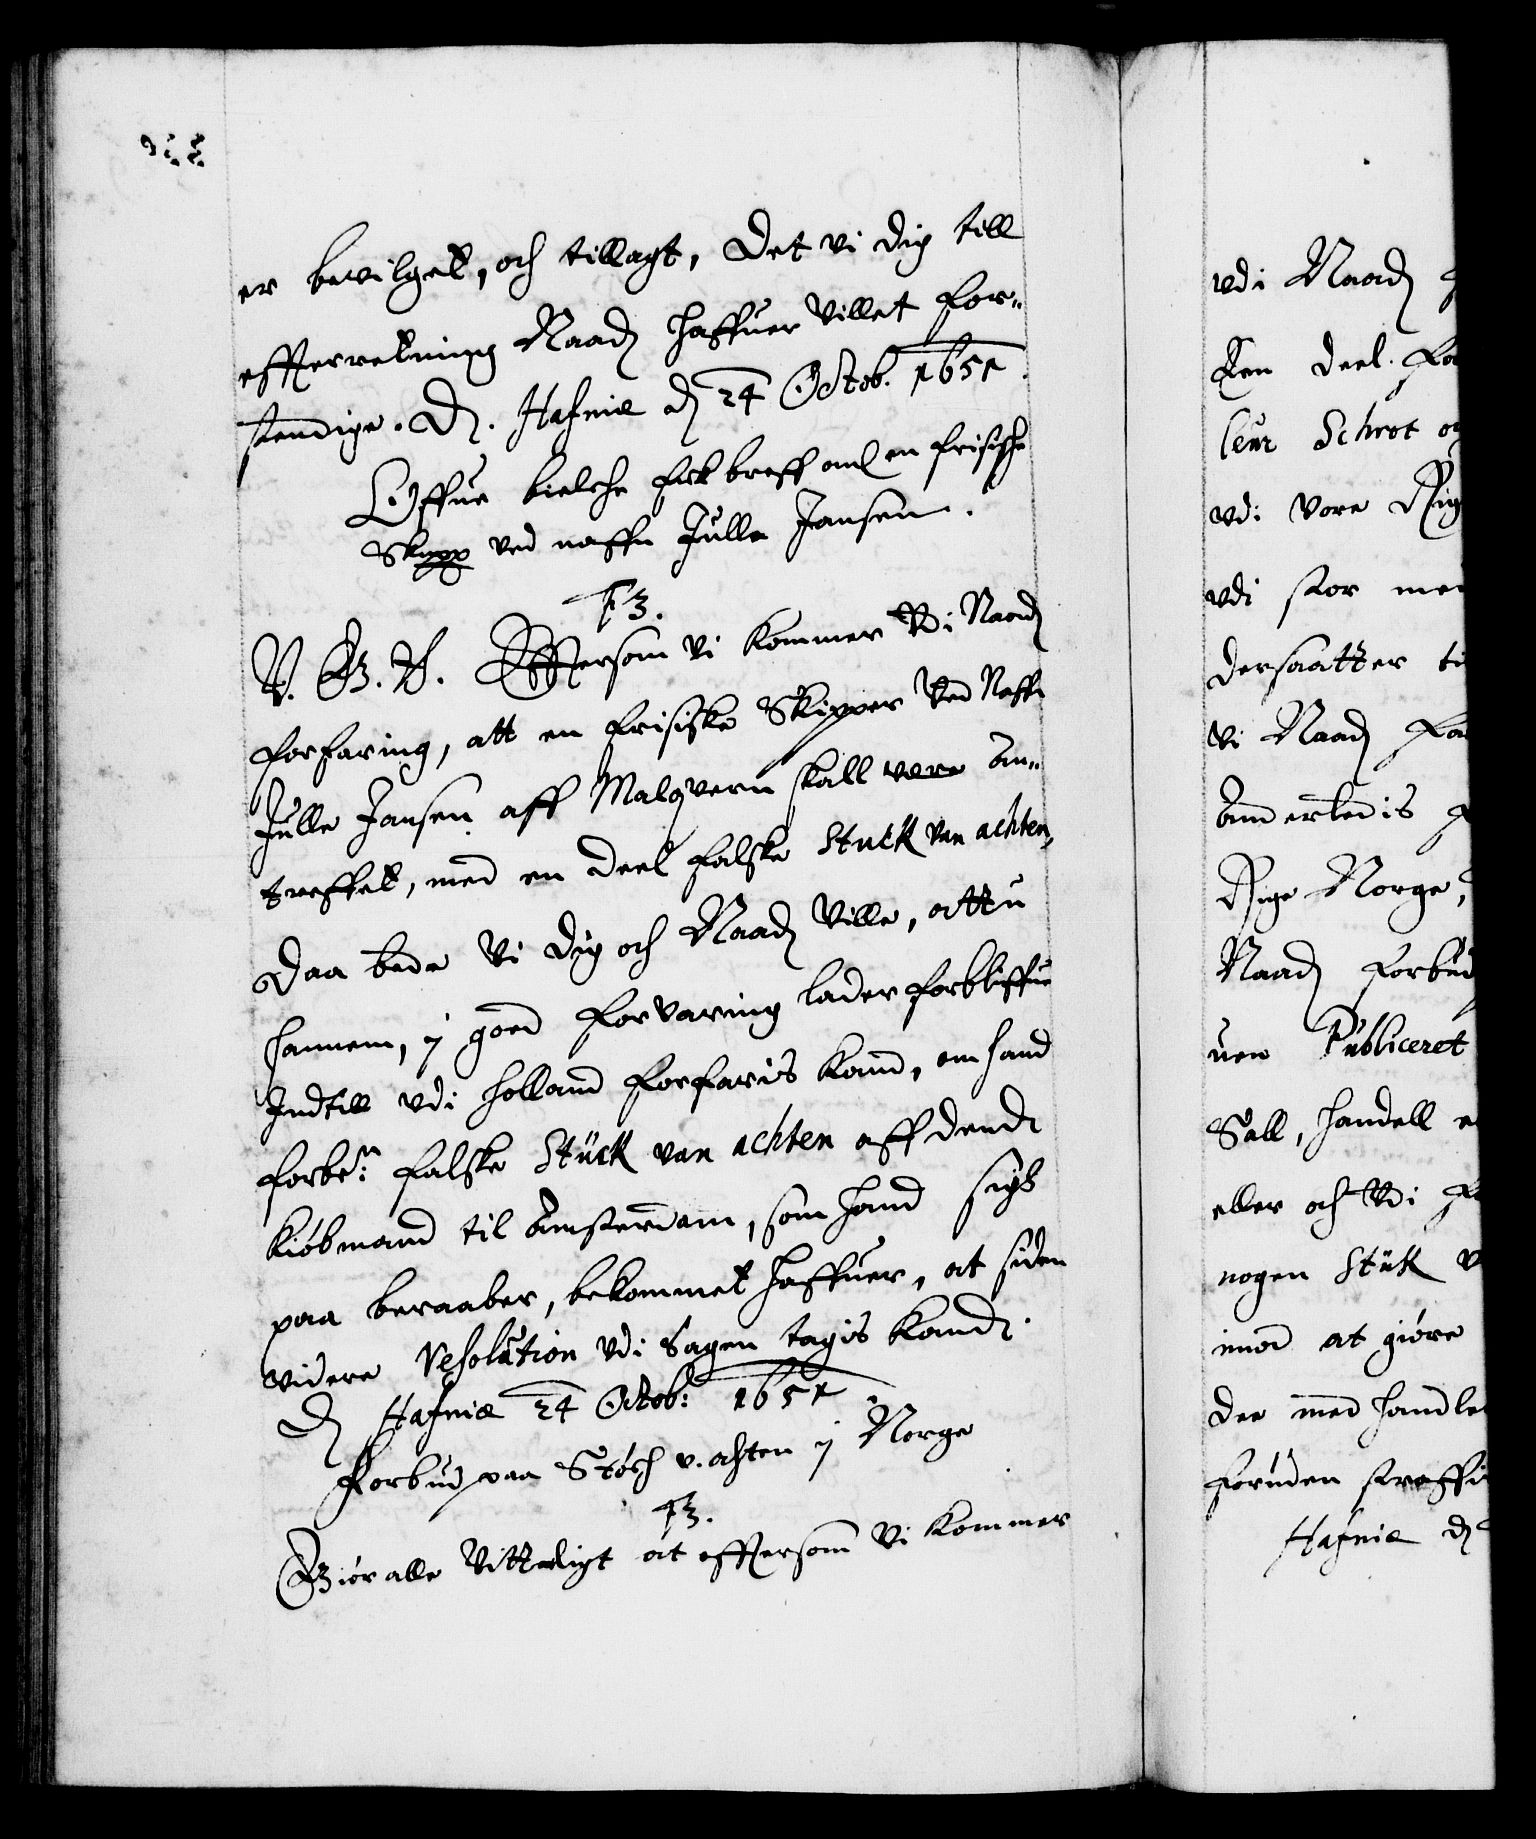 er bevilget, och tillagt, Det vi dig till
effterretning Naadi haffuer villet for-
stendige. D. Hafniæ d 24 Octob. 1651.
Offue Bielche fik breff om en frisische
Skipp ved naffn Julle Jansen.
F3.
V. G. T. Effersom vi kommer Udi Naadi
forfaring, att en frisiske Skipper Ved Naffn
Julle Jansen aff Malqvern skall være An-
treffet, med en deel falske Stuck van achten,
Daa bede Vi dig och Naadi Ville, attu
hannem, y goed forvaring lader forbliffue
Indtill udi Holland forfaris kand, om hand
forbe.n falske Stück van achten aff dend
kiöbmand til Amsterdam, som hand sigh
paa beraaber, bekommet haffuer, at siden
videre Resolution Udi Sagen tagis kand.
D Hafniæ 24 Octob: 1651.
Forbud paa Stöch v. achten y Norge
F3.
Giör alle Vitterligt at effersom Vi kommer
vdi Naadi
Een deel. Fa
leur Schrot o
vdi Vore Rig
vdi stor me
dersaatter ti
Vi Naadi
Anderledis
Rige Norge,
Naadi forbud
uen Publiceret
Sall, handell e
eller och Udi
nogen Stük v
imod at giöre
der med handle
foruden straffi
Hafniæ d